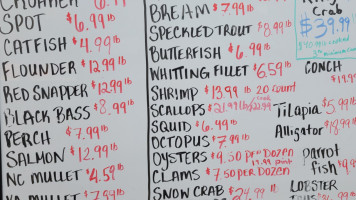 CROAKER
SPOT $6.99 lb
CATFISH $4.99 lb
FLOUNDER $12.99 lb
RED SNAPPER $12.99 lb
BLACK BASS $8.99 lb
PERCH $7.99 lb
SALMON $12.99 lb
NC MULLET $4.59 lb
BREAM $7.99 lb
SPECKLED TROUT $8.99 lb
BUTTERFISH $6.99 lb
WHITING FILLET $6.59 lb
SHRIMP $13.99 lb 20 count
SCALLOPS
SQUID $6.99 lb
OCTOPUS $7.99 lb
OYSTERS $9.50 per DOZEN
CLAMS $7.50 per DOZEN
SNOW CRAB $24.99 lb
Crab
$39.99
CONCH
$19.99
Tilapia $5.99
Alligator $18.99
parrot
fish
LOBSTER